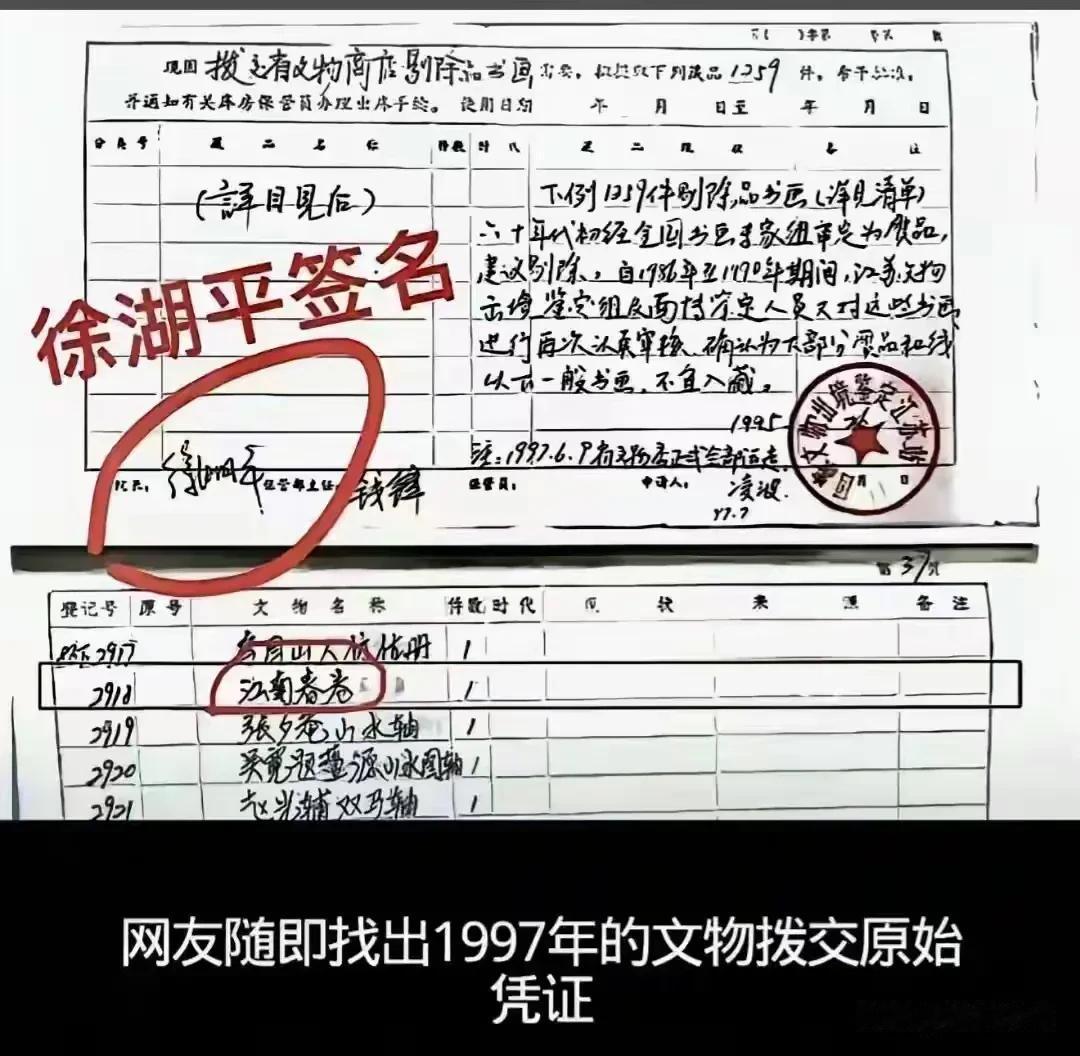 现因 拨交省文物商店剔除品书画 需要,拟提取下列藏品 1259 件,希予 。
并通知有关库房保管员办理出库手续。使用日期 年 月 日至 年 月 日
分类号 藏品名称 件数 时代 藏品现状 备注
(詳目見后)
下例1259件剔除品书画(详見清单)
六十年代初经全国书画专家组审定为贋品,
建议剔除。自1986年至1990年期间,江苏文物
出境鉴定组及面特鉴定人员又对这些书画
进行再次认真审核,确认为大部分 品和线
以下一般书画,不宜入藏。
1995
注:1997.6.9 省文物店正式全部运走
院长: 徐湖平 保管部主任: 钱锋 保管员: 申请人: 凌波
97.7
文物出境鉴定江苏
徐湖平签名
第 37 页
登记号 原号 文物名称 件数 时代 现状 来源 备注
2917 山人 册 1
2918 江南春卷 1
2919 張夕菴山水轴 1
2920 吴 山水图轴 1
2921 赵光 双马轴 1
网友随即找出1997年的文物拨交原始
凭证